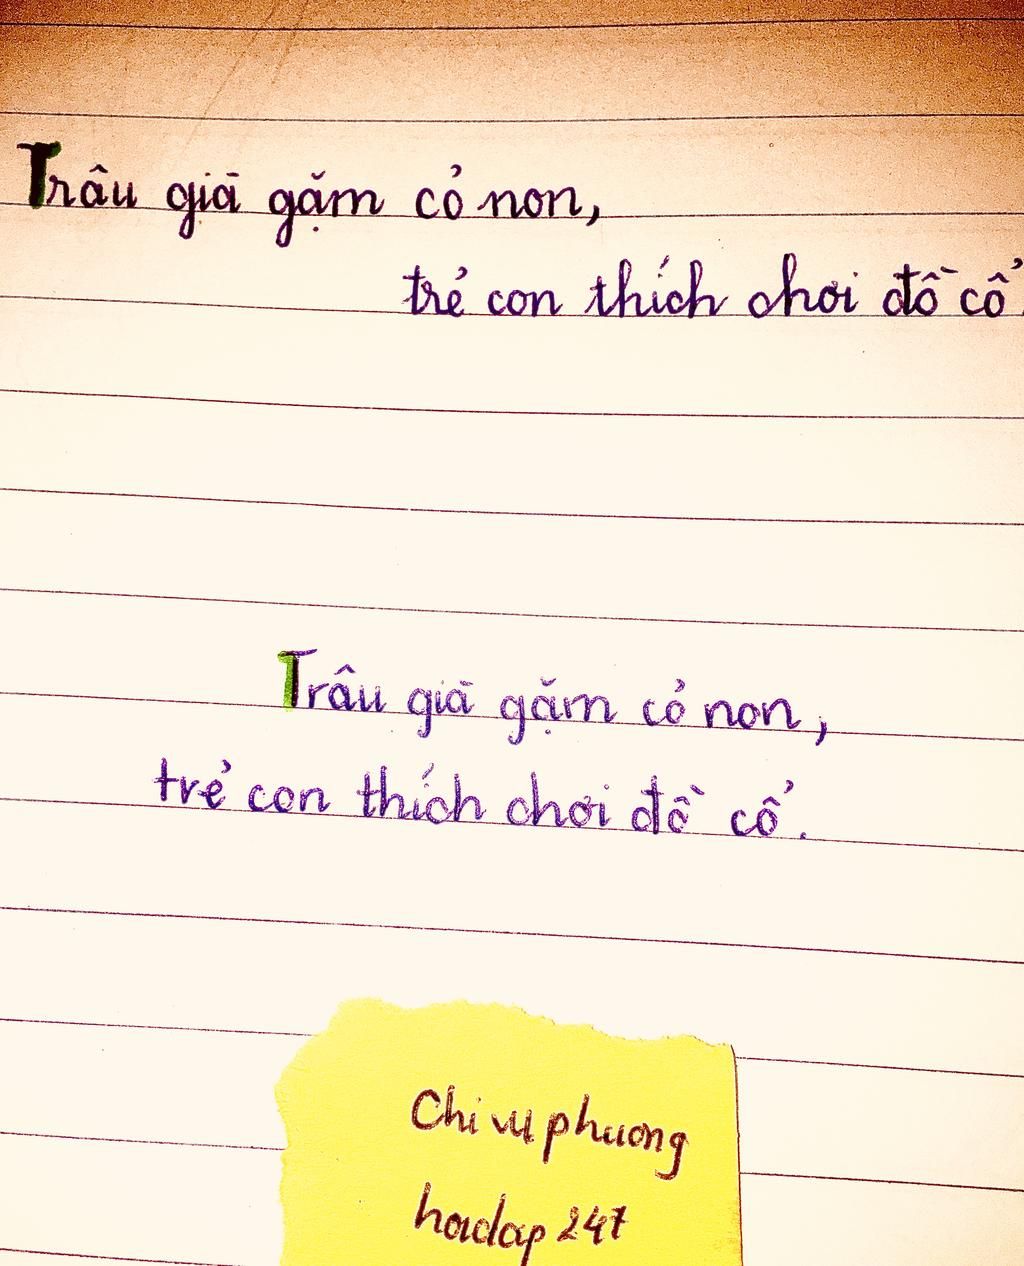 Trâu già gặm cỏ non,
trẻ con thích chơi đồ cổ.
Trâu già gặm cỏ non,
trẻ con thích chơi đồ cổ.
Chivuphuong
hoidap247